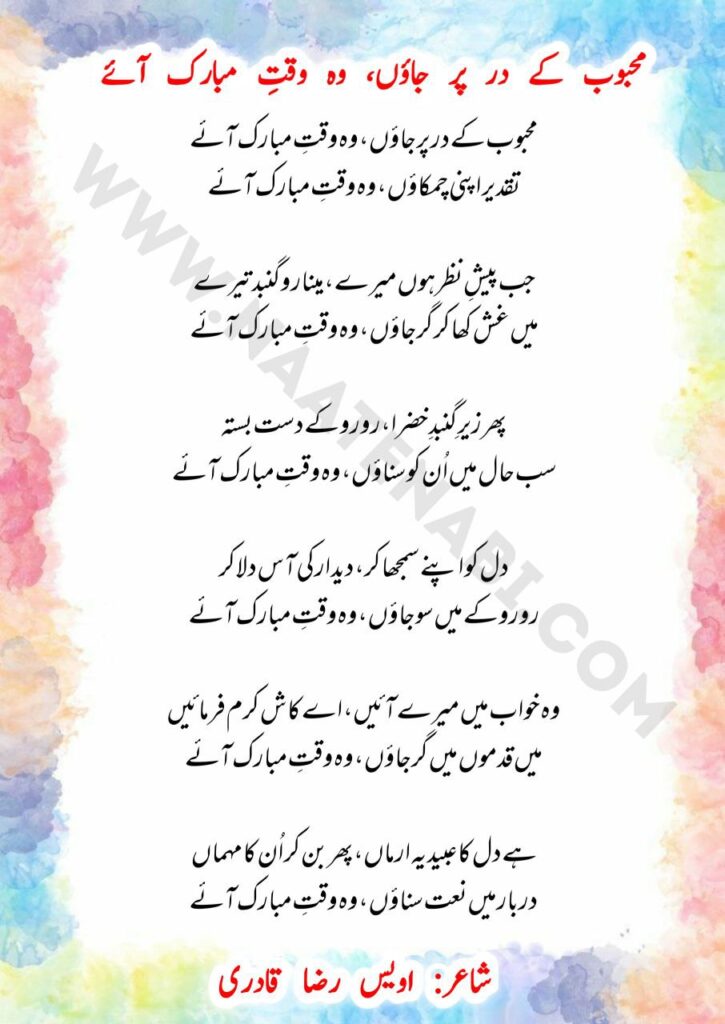 محبوب کے در پر جاؤں، وہ وقتِ مبارک آئے
محبوب کے در پر جاؤں، وہ وقتِ مبارک آئے
تقدیر اپنی چمکاؤں، وہ وقتِ مبارک آئے
جب پیشِ نظر ہوں میرے، مینار و گنبد تیرے
میں غش کھا کر گر جاؤں، وہ وقتِ مبارک آئے
پھر زیرِ گنبدِ خضرا، رو رو کے دست بستہ
سب حال میں اُن کو سناؤں، وہ وقتِ مبارک آئے
دل کو اپنے سمجھا کر، دیدار کی آس دلا کر
رو رو کے میں سو جاؤں، وہ وقتِ مبارک آئے
وہ خواب میں میرے آئیں، اے کاش کرم فرمائیں
میں قدموں میں گر جاؤں، وہ وقتِ مبارک آئے
ہے دل کا عبید یہ ارماں، پھر بن کر اُن کا مہماں
دربار میں نعت سناؤں، وہ وقتِ مبارک آئے
شاعر: اویس رضا قادری
WWW.NAATENABI.COM